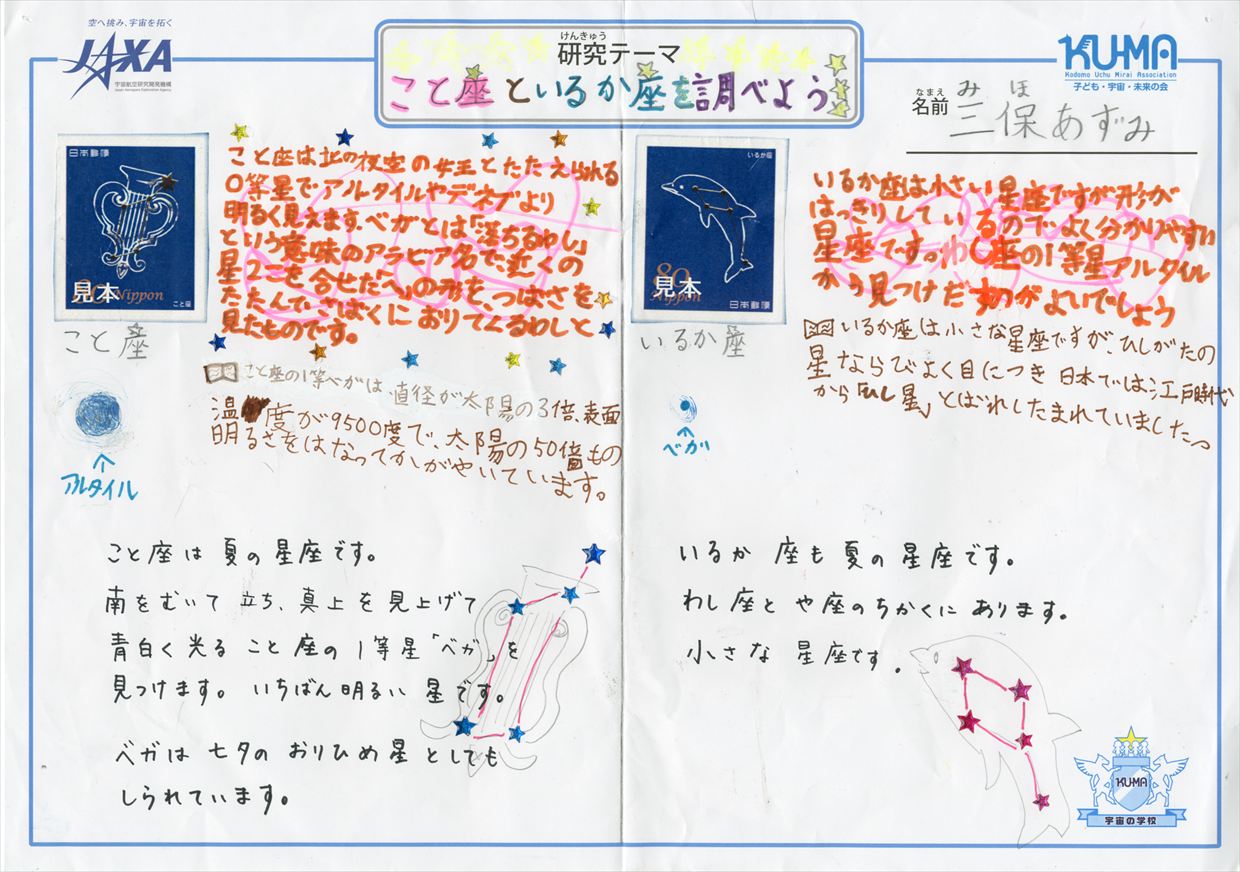 空へ挑み、宇宙を拓く
JAXA
宇宙航空研究開発機構
Japan Aerospace Exploration Agency
けんきゅう
研究テーマ
こと座といるか座を調べよう
KU-MA
Kodomo Uchu Mirai Association
子ども・宇宙・未来の会
なまえ
名前
みほ
三保あずみ
日本郵便
見本
80 Nippon
こと座
こと座
こと座は北の夜空の女王とたたえられる
0等星でアルタイルやデネブより
明るく見えます。ベガとは「落ちるわし」
という意味のアラビア名で、近くの
星2こを合せた「へ」の形を、つばさを
たたんでさばくにおりてくるわしと
見たものです。
こと座の1等べがは、直径が太陽の3倍、表面
温度が9500度で、太陽の50倍もの
明るさをはなってかがやいています。
アルタイル
こと座は夏の星座です。
南をむいて立ち、真上を見上げて
青白く光ること座の1等星「ベガ」を
見つけます。いちばん明るい星です。
ベガは七夕のおりひめ星としても
しられています。
いるか座
80
見本
Nippon
日本郵便
いるか座
いるか座は小さい星座ですが形が
はっきりしているのでよく分かりやすい
星座です。わし座の1等星アルタイル
から見つけだすのがよいでしょう
いるか座は小さな星座ですが、ひしがたの
星ならびがよく目につき日本では江戸時代
から「ひし星」とばれしたまれていましたっ
ベガ
いるか座も夏の星座です。
わし座とや座のちかくにあります。
小さな星座です。
KU-MA
宇宙の学校